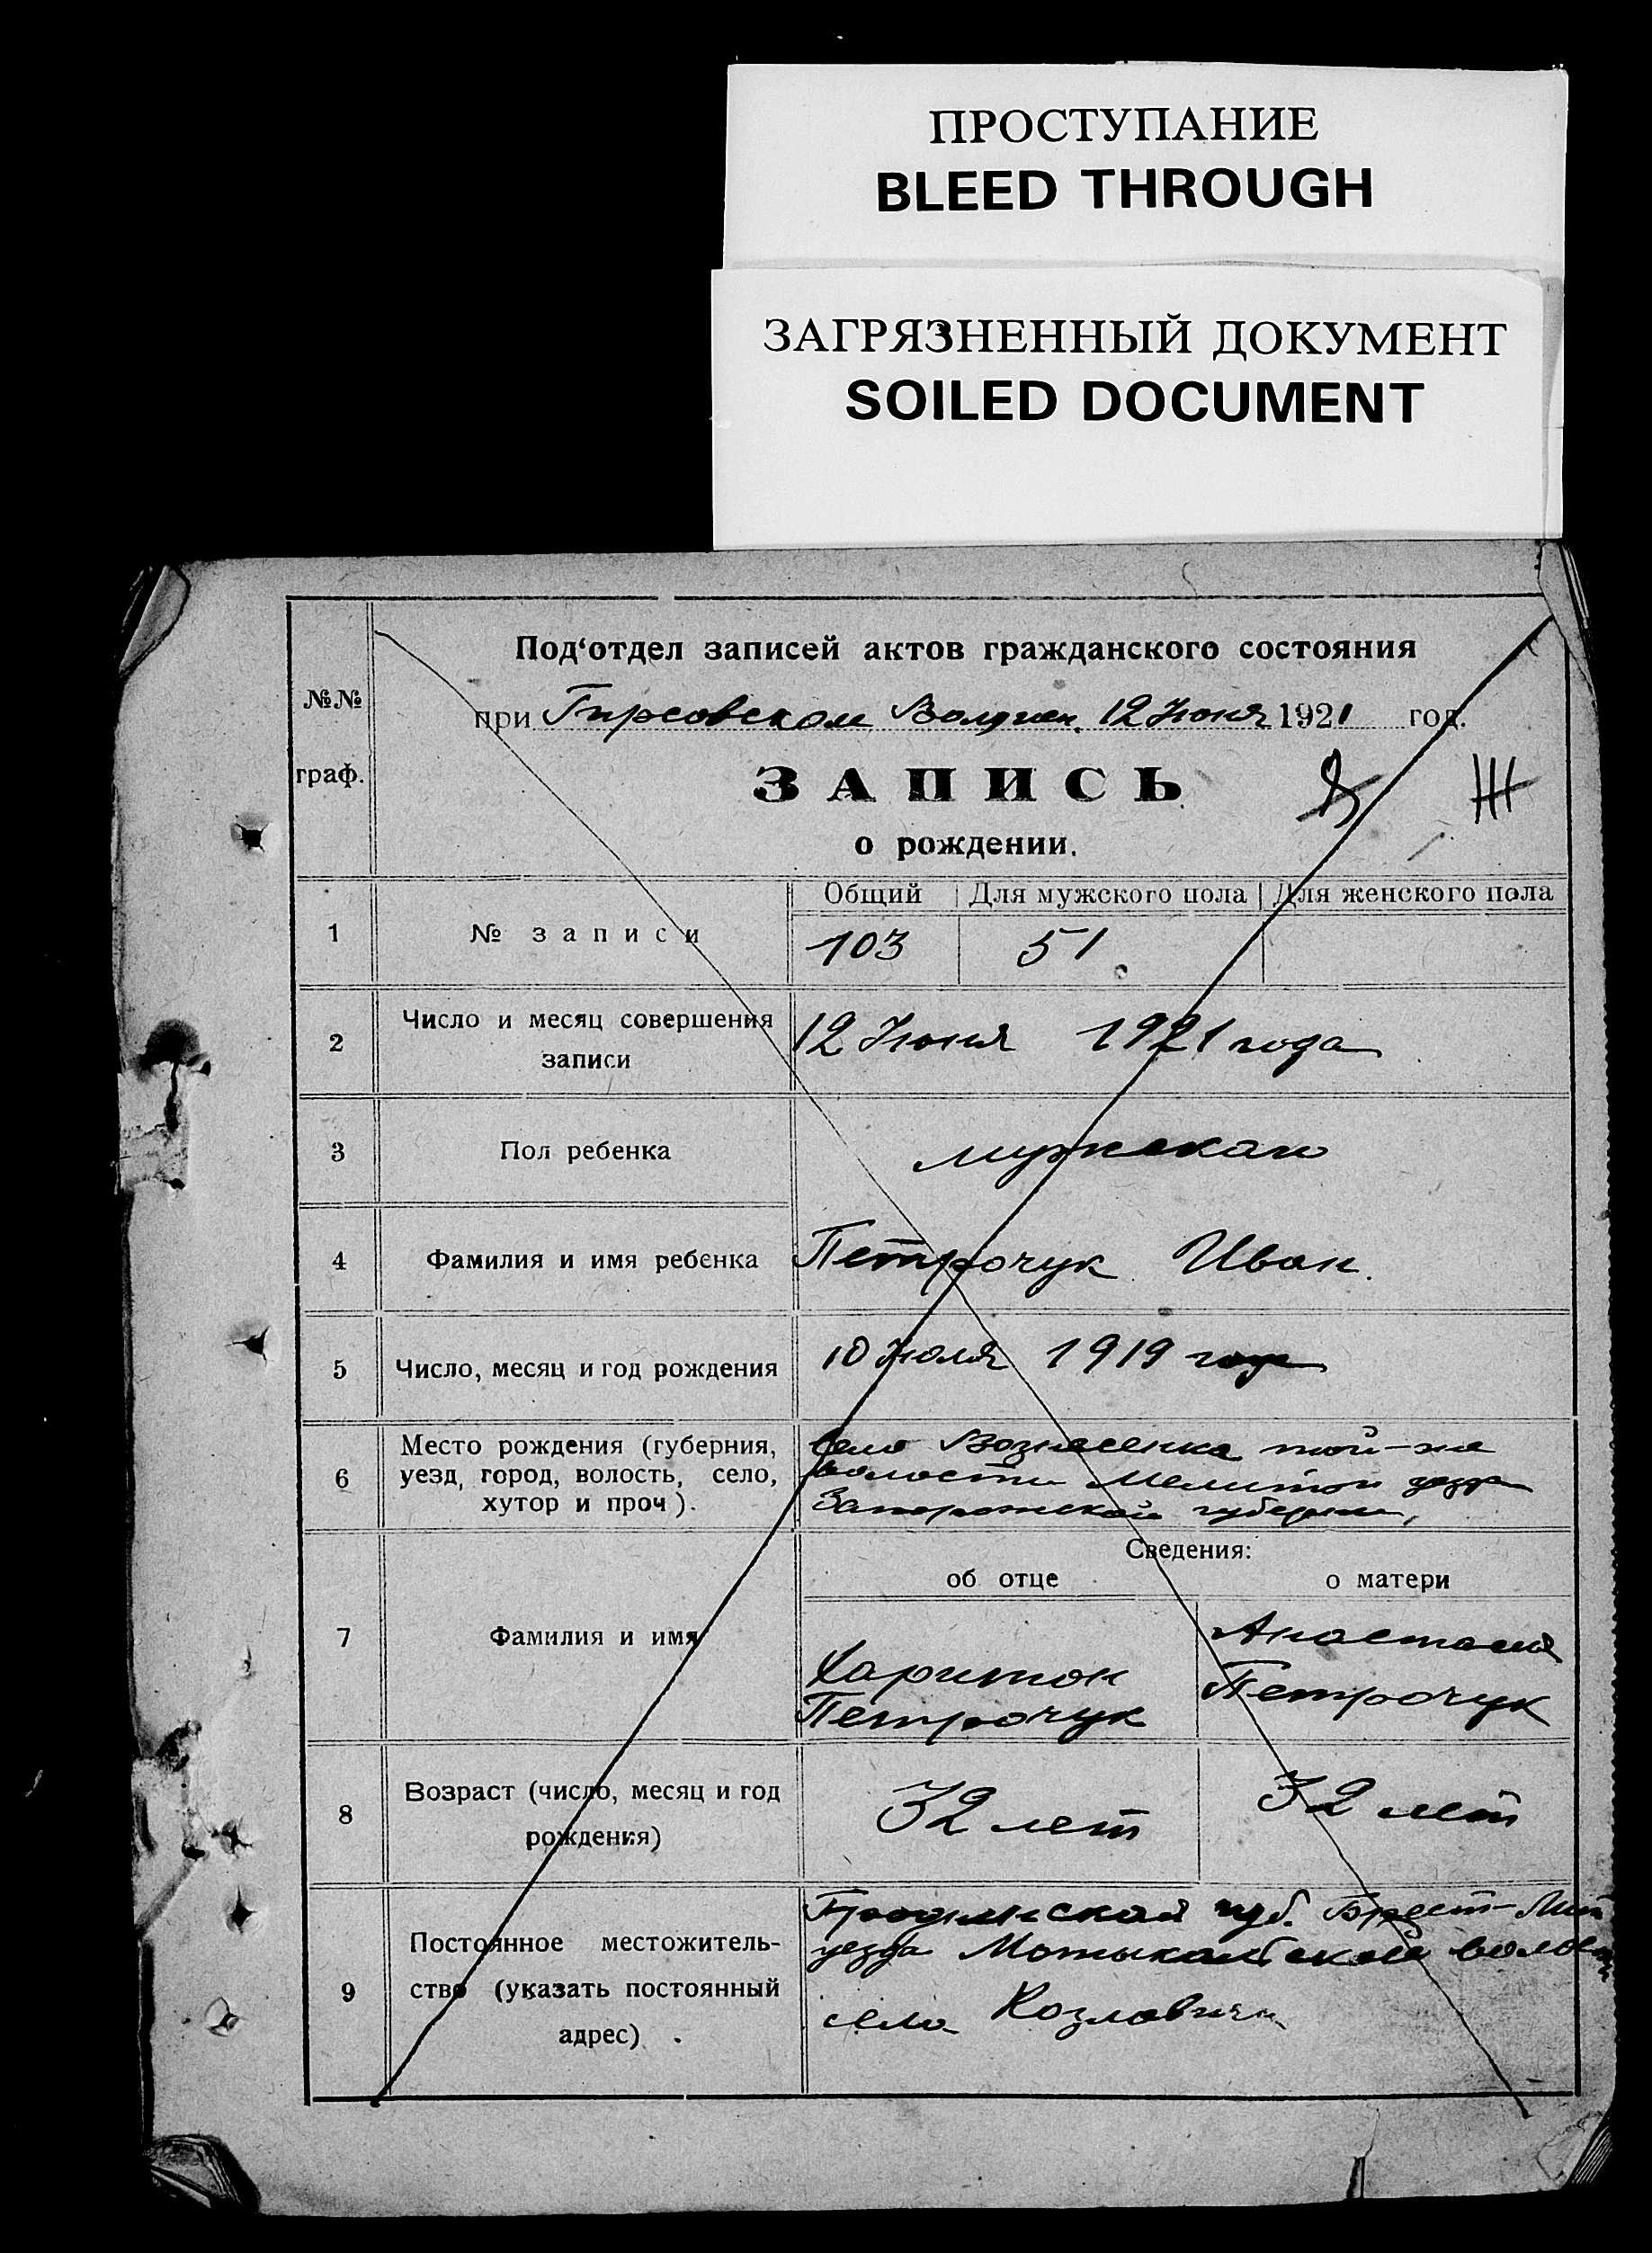 ПРОСТУПАНИЕ
BLEED THROUGH
ЗАГРЯЗНЕННЫЙ ДОКУМЕНТ
SOILED DOCUMENT
№№
граф.
Под‘отдел записей актов гражданского состояния
при Гирсовском 12 Июня 1921 год.
ЗАПИСЬ
о рождении.
Ж
Общий Для мужского пола Для женского пола
1 № записи 103 51
2 Число и месяц совершения
записи
12 Июня 1921 года
3 Пол ребенка мужскаго
4 Фамилия и имя ребенка Петрочук Иван.
5 Число, месяц и год рождения 10 Июля 1919 года
6 Место рождения (губерния,
уезд, город, волость, село,
хутор и проч).
Село Вознесенка той-же
волости Мелитоп уезда
Запорожской губернии,
Сведения:
об отце о матери
7 Фамилия и имя
Харитон
Петрочук
Анастасия
Петрочук
8 Возраст (число, месяц и год
рождения)
32 лет 32 лет
9 Постоянное местожитель-
ство (указать постоянный
адрес)
Гродненской губ. Брест-Лит
уезда волости
село Козловичи